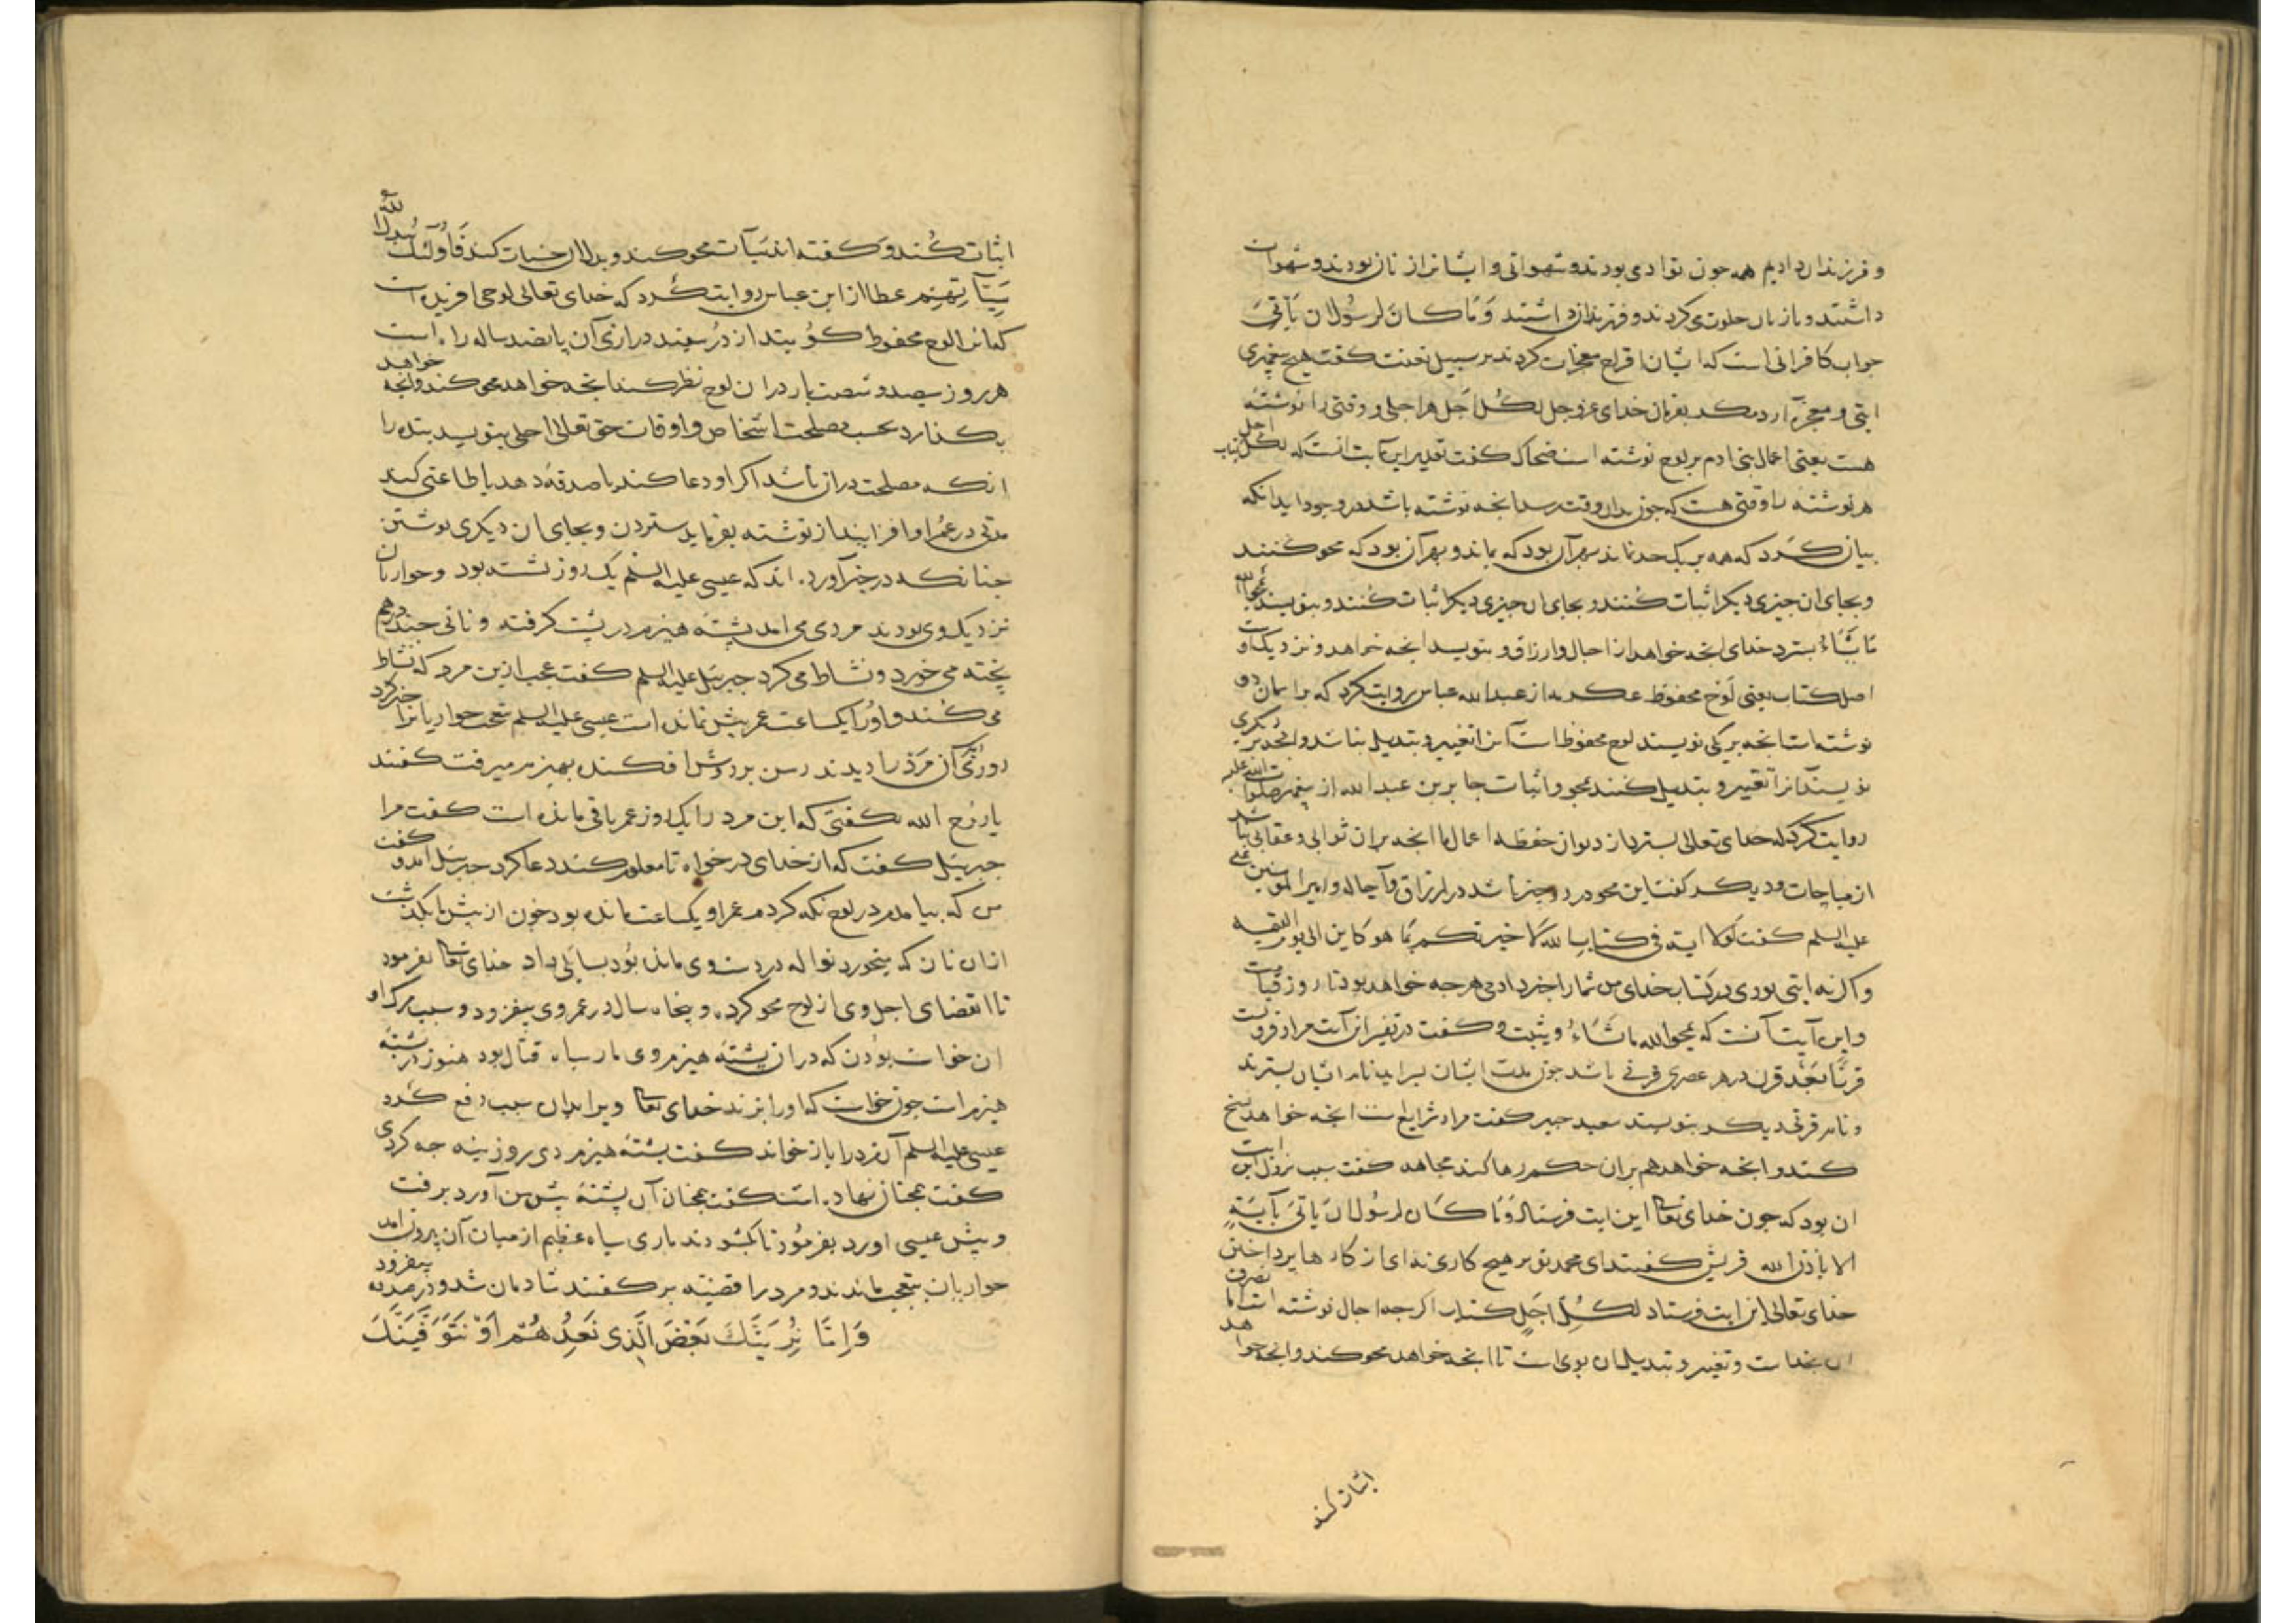 و فرزندان دادیم همه جون تو ادمی بودند و شهوانی و ایشانرا زنان بودند و شهوات
داشتند و با زنان خلوت می کردند و فرزندان داشتند وَمَا كَانَ لرسُول ان یَأتیَ
جواب کافرانی است که ایشان اقتراح معجزات کردند بر سبیل تعنت کفت هیچ پیغمبری
ایتی و معجزه آرد مکر بفرمان خدای عزوجل لكُل اَجَل هر اجلی و وقتی را نوشته
هست یعنی اعمال بنی ادم بر لوح نوشته است ضحاک کفت تقدیر این آیت انست که لکل کتاب اجل
هر نوشته را وقتی هست که جون بدان وقت رسد انجه نوشته باشد در وجود اید انکه
بیان کرد که همه بر یک حد نماند بهر آن بود که بماند و بهر آن بود که محو کنند
و بجای ان جیزی دیکر اثبات کنند و بجای ان جیزی دیکر اثبات کُنند و بنویسند یمحوا الله
مَا یَشَاءُ بسترد خدای انجه خواهد از اجال و ارزاق و بنویسد انجه خواهد و نزدیک اوست
اصل کتاب یعنی لَوح محفوظ عکرمه از عبدالله عباس روایت کرد که بر اسمان دو
نوشته است انجه بر یکی نویسند لوح محفوظ است آنرا تغییر و تبدیل نباشد و انجه بر دیکری
نویسند آنرا تغییر و تبدیل کنند بمحو و اثبات جابر بن عبدالله از پیغمبر صلوات الله علیه
روایت کرد که خدای تعالی بسترد از دیوان حفظه اعمال ما انجه بران ثوابی و عقابی نباشد
از مباحات و دیکر کفت این محو در دو جیز باشد در ارزاق و آجال و امیر المومنین علی
علیه السلم کفت لولا ایة فی کتاب الله لاخبرتکم بما هو کاین الی یوم القیمه
و اکر نه ایتی بودی در کتاب خدای من شما را خبر دادمی هر جه خواهد بود تا روز قیامت
و این آیت آنست که یمحوا الله ما یشَاءُ و یثبت و کفت در تفسیر این آیت مراد قرونست
قرنًا بَعْد قرن در هر عصری قرنی باشد جون مدت ایشان بسراید نام ایشان بسترند
و نام قرنی دیکر بنویسند سعید جبیر کفت مراد شرایع است انجه خواهد نسخ
کند و انجه خواهد هم بران حکم رها کند مجاهد کفت سبب نزول این ایت
ان بود که جون خدای تعا این ایت فرستاد وَمَا كَان لرسُول ان یَاتیَ بآیَةٍ
الا باذن الله قریش کفتند ای محمد تو بر هیج کاری نه ای از کارها پرداختن
خدای تعالی این ایت فرستاد لكُلِ اَجَلٍ کتاب اکر جه اجال نوشته است اما تصرف
ان بخداست و تغییر و تبدیل ان بوی است تا انجه خواهد محو کند و انجه خواهد
اثبات کند
اثبات کُند وَ کفته اند سَیِّآت محو کند و بدل ان حسنات کند فَاُولئك یُبدل الله
سَیِّآتِهِم عطا از ابن عباس روایت کرد که خدای تعالی لوحی افریده است
که انرا لوح محفوظ کویند از دُر سفید درازی آن پانصد ساله راه است
هر روز سیصد و شصت بار در ان لوح نظر کند انجه خواهد محو کند و انجه خواهد
بکذارد بحسب مصلحت اشخاص و اوقات حق تعالی اجلی بنویسد بنده را
انکه مصلحت دران باشد اکر او دعا کند یا صدقه دهد یا طاعتی کند
مدتی در عُمر او افزایند از نوشته بفرماید ستردن و بجای ان دیکری نوشتن
جنانکه در خبر آورده اند که عیسی علیه السلم یک روز نشسته بود و حواریان
نزدیک وی بودند مردی می امد پشتهٔ هیزم در پشت کرفته و نانی جند درهم
پخته می خورد و نشاط می کرد جبرئیل علیه السلم کفت عجب ازین مرد که نشاط
می کُند و اورا یکساعت عمر بیش نمانده است عیسی علیه السلم حواریانرا خبر کرد
روز آن مَرد را دیدند رسن بر دوش افکنده بهیزم میرفت کفتند
یا روح الله نکفتی که این مرد را یک روز عمر باقی مانده است کفت مرا
جبرئیل کفت که از خدای درخواه تا معلوم کند دعا کرد جبرئیل امد و کفت
من که بیامدم در لوح نکه کردم عمر او یکساعت مانده بود جون از پیش ما بکذشت
ازان نان که میخورد نواله در دست وی مانده بُود بسایلی داد خدای تعا بفرمود
تا انقضای اجل وی از لوح محو کرد و پنجاه سال در عمر وی بیفزود و سبب مرک او
ان خواست بودن که دران پشتهٔ هیزم وی مار سیاه قتّال بود هنوز در پشتهٔ
هیزم است جون خواست که اورا بزند خدای تعا ویرا بدان سبب دفع کرد
عیسی علیه السلم آن مرد را باز خواند کفت پشتهٔ هیزم دی روزینه جه کردی
کفت همجنان نهاده است کفت همجنان آن پشتهٔ پیش من آورد برفت
و پیش عیسی اورد بفرمُود تا بکشودند ماری سیاه عظیم از میان آن بیرون امد
حواریان بتعجب ماندند و مرد را قضیّه بر کفتند شادمان شد و در صدقه بیفزود
وَاِمَّا نُرِيَنَّكَ بَعْضَ الَّذی نَعِدُهُمْ اَوْ نَتَوَفَّيَنَّكَ